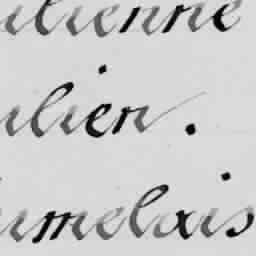 ulienne
ulien.
umelais